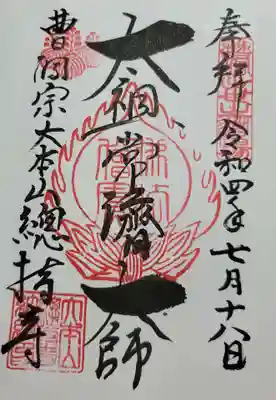 奉拜 令和四年七月十八日
太祖常濟大師
曹洞宗大本山總持寺